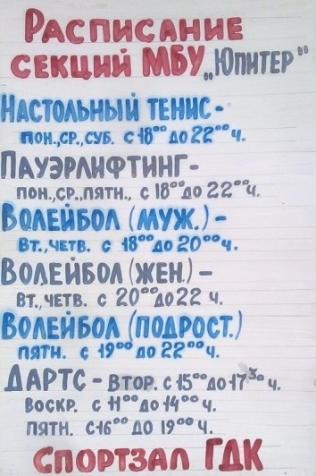 Расписание
секций МБУ „Юпитер"
Настольный тенис-
пон.,ср.,суб. с 18⁰⁰ до 22⁰⁰ ч.
Пауэрлифтинг-
пон.,ср.,пятн., с 18⁰⁰ до 22⁰⁰ ч.
Волейбол (муж.) -
вт., четв. с 18⁰⁰ до 20⁰⁰ ч.
Волейбол (жен.) -
вт., четв. с 20⁰⁰ до 22 ч.
Волейбол (подрост.)
пятн. с 19⁰⁰ до 22⁰⁰ ч.
Дартс - втор. с 15⁰⁰ до 17³⁰ ч.
воскр. с 11⁰⁰ до 14⁰⁰ ч.
пятн. с 16⁰⁰ до 19⁰⁰ ч.
Спортзал ГДК